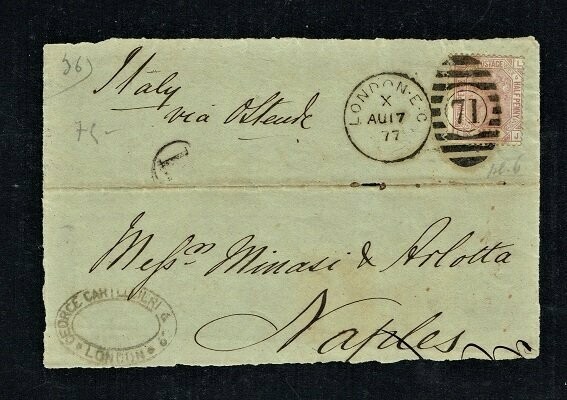 36)
Italy
via Ostende
75-
LONDON·E.C
X
AU 17
77
71
POSTAGE
HALF PENNY
L
Messrs Minasi & Arlotta
Naples
GEORGE & Co
LONDON